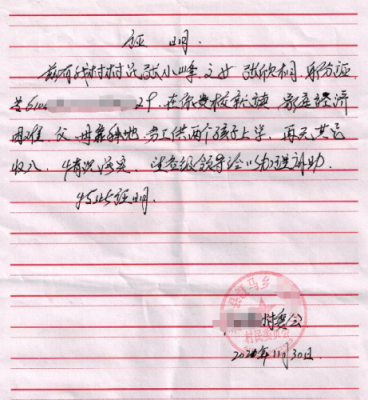 证明.
兹有我村村民张小峰之女张欣桐,身份证
号61 29.在我贵校就读,家庭经济
困难,父母靠种地务工供两个孩子上学,再无其它
收入.情况属实.望各级领导给以办理补助.
特此证明.
马乡
村委会
村民委员会
年11月30日.